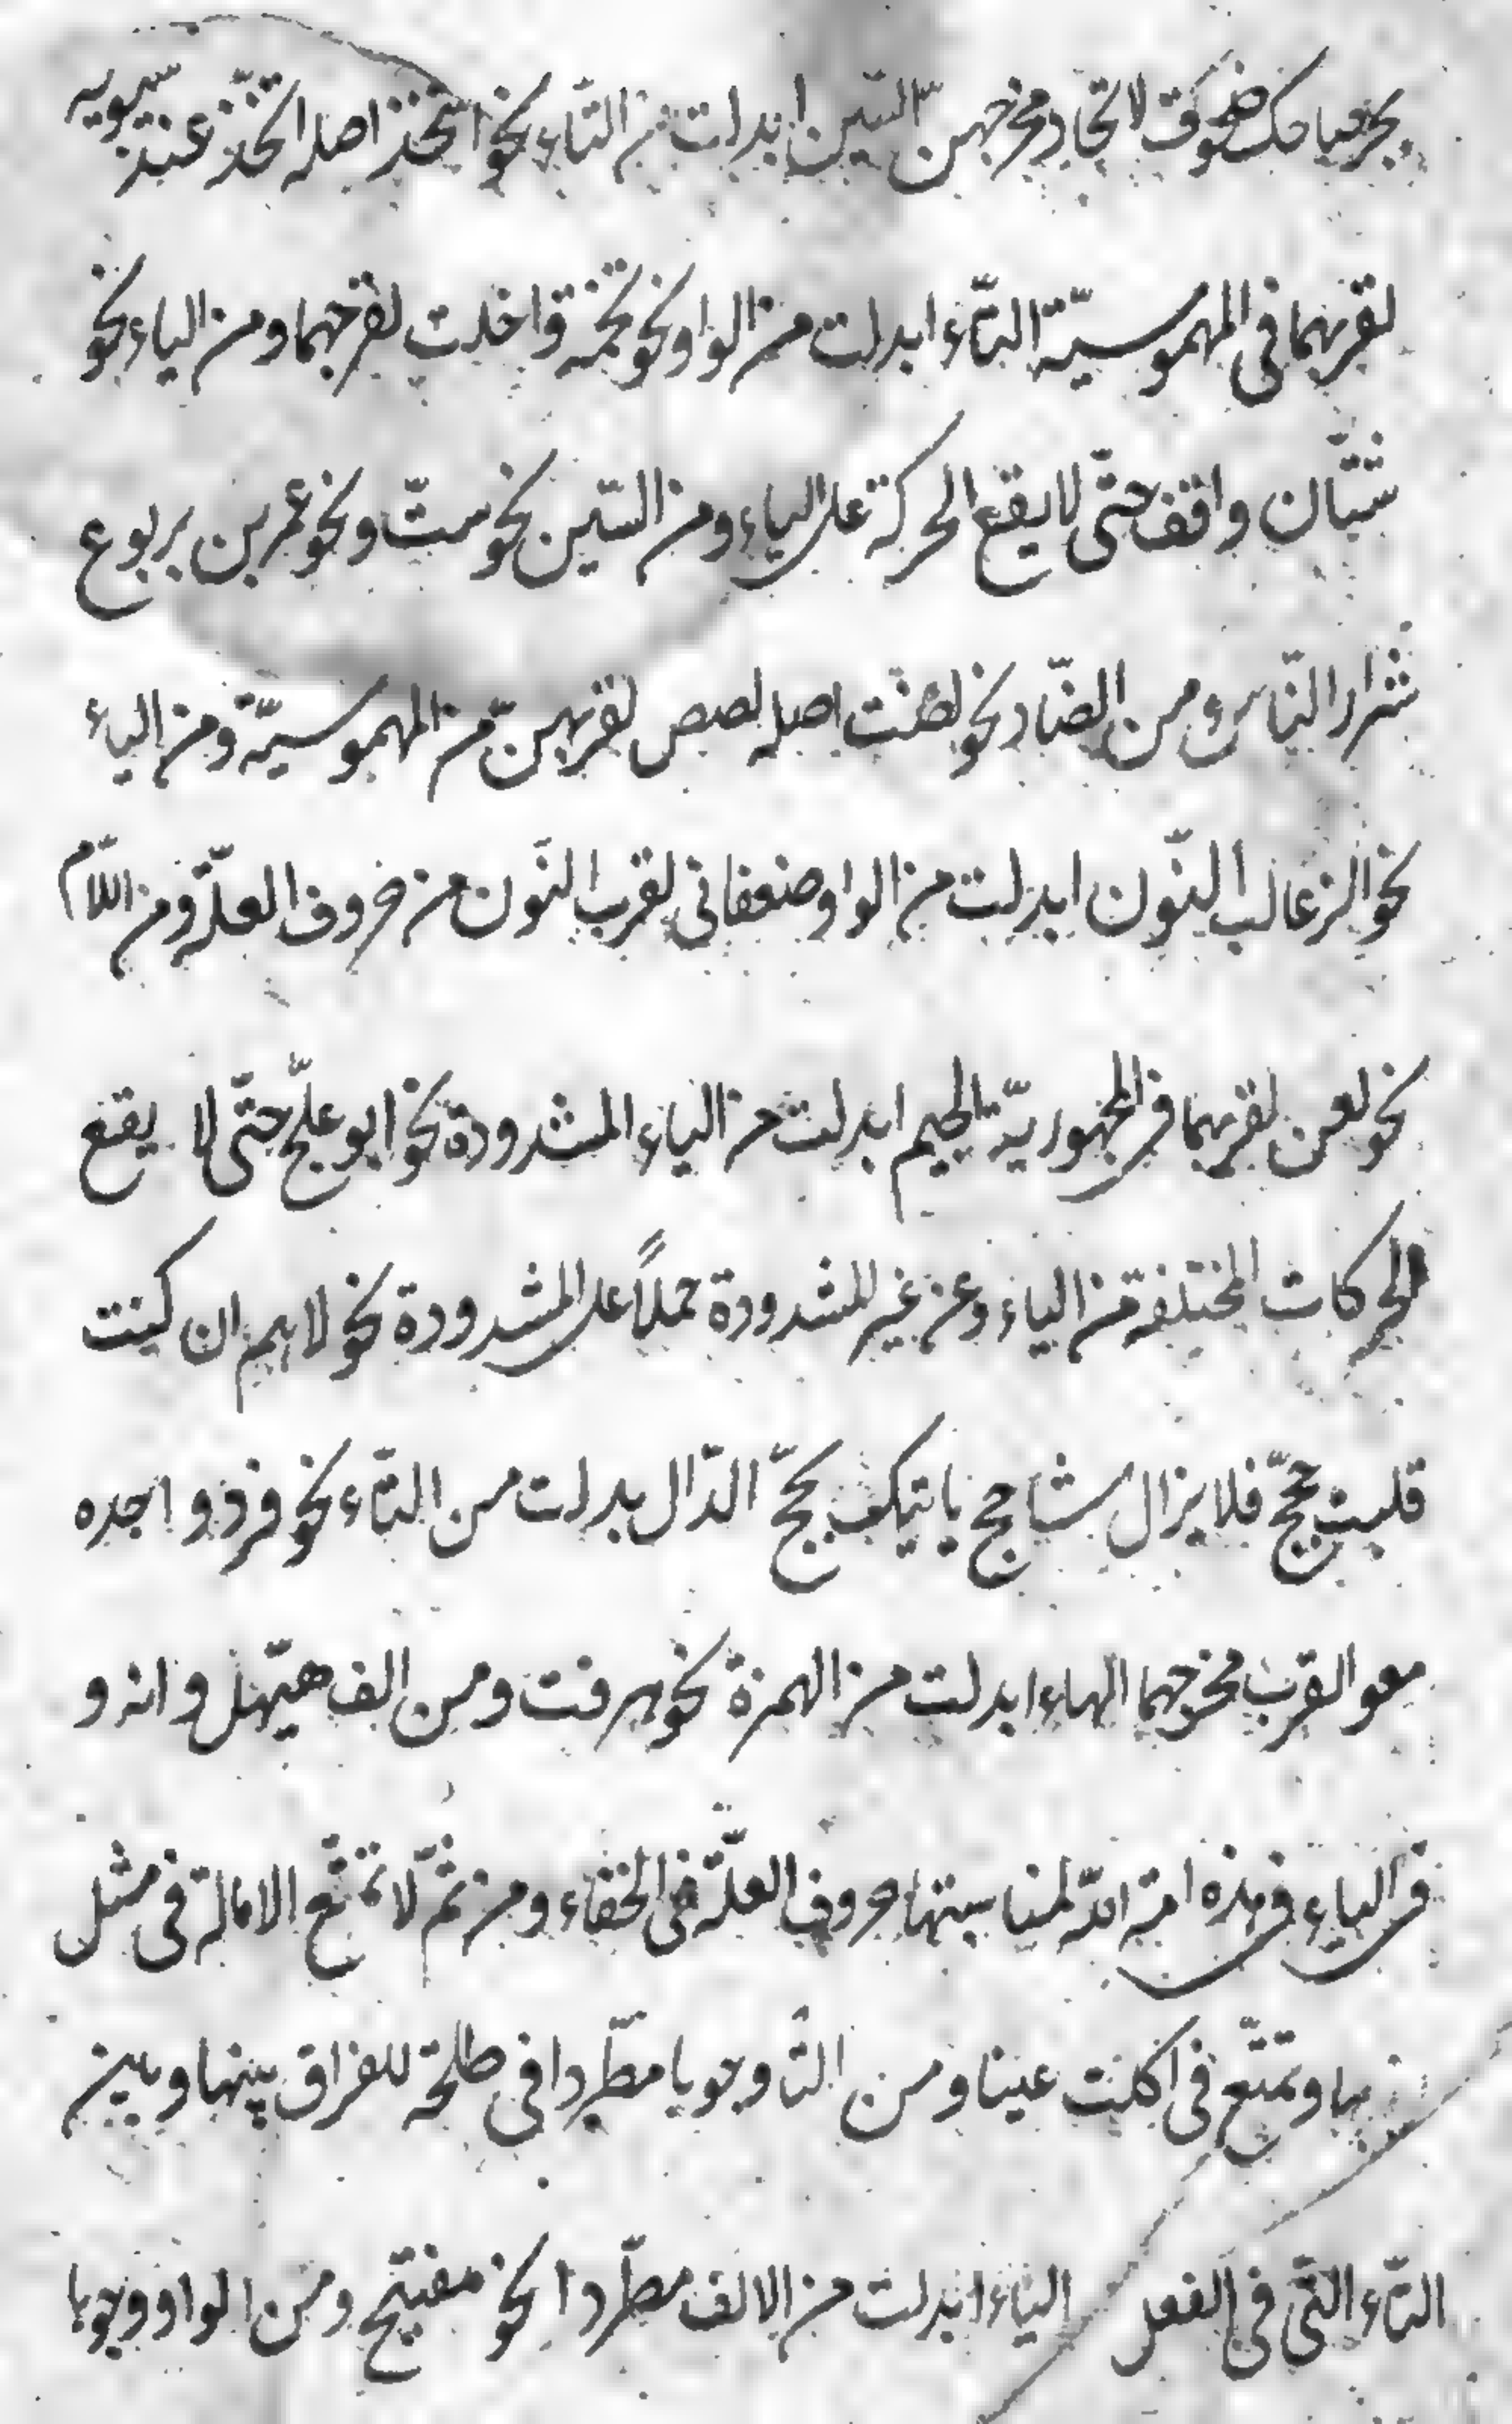 نحو عباب ضحوك لاتحاد مخرجهن السّين ابدلت من التّاء نحو استخذ اصله اتّخذ عند سيبويه
لقربهما فى المهموسيّة التّاء ابدلت من الواو نحو تخمة واخت لقرب مخرجهما ومن الياء نحو
ثنتان واقف حتّى لا يقع الحركة على الياء ومن السّين نحو ستّ ونحو عمرو بن يربوع
شرار النّات ومن الصّاد نحو لصت اصله لصص لقربهن من المهموسيّة ومن الباء
نحو الزعالب النّون ابدلت من الواو صنعانى لقرب النّون من حروف العلّة ومن اللاّم
نحو لعن لقربهما فى المجهوريّة الجيم ابدلت من الياء المشدودة نحو ابو علجّ حتّى لا يقع
الحركات المختلفة من الياء وعن غير المشدودة حملاً على المشدودة نحو لاهم ان كنت
قلبت حجتج فلا يزال شاحج ياتيك بحجّ الدّال بدلت من التّاء نحو فزد و اجده
معوا لقرب مخرجهما الهاء ابدلت من الهمزة نحو هرقت ومن الف هيّهل وانه و
فى الياء فى هذه امة الله لمناسبتها حروف العلّة فى الخفاء ومن ثمّ لا تمتنع الامالة فى مثل
بها وتمتنّع فى اكلت عينا ومن التّا وجوبا مطّردا فى طلحة للفراق بينها وبين
التّاء التّى فى الفعل الياء ابدلت من الالف مطّردا نحو مفيتيح ومن الواو وجوبا